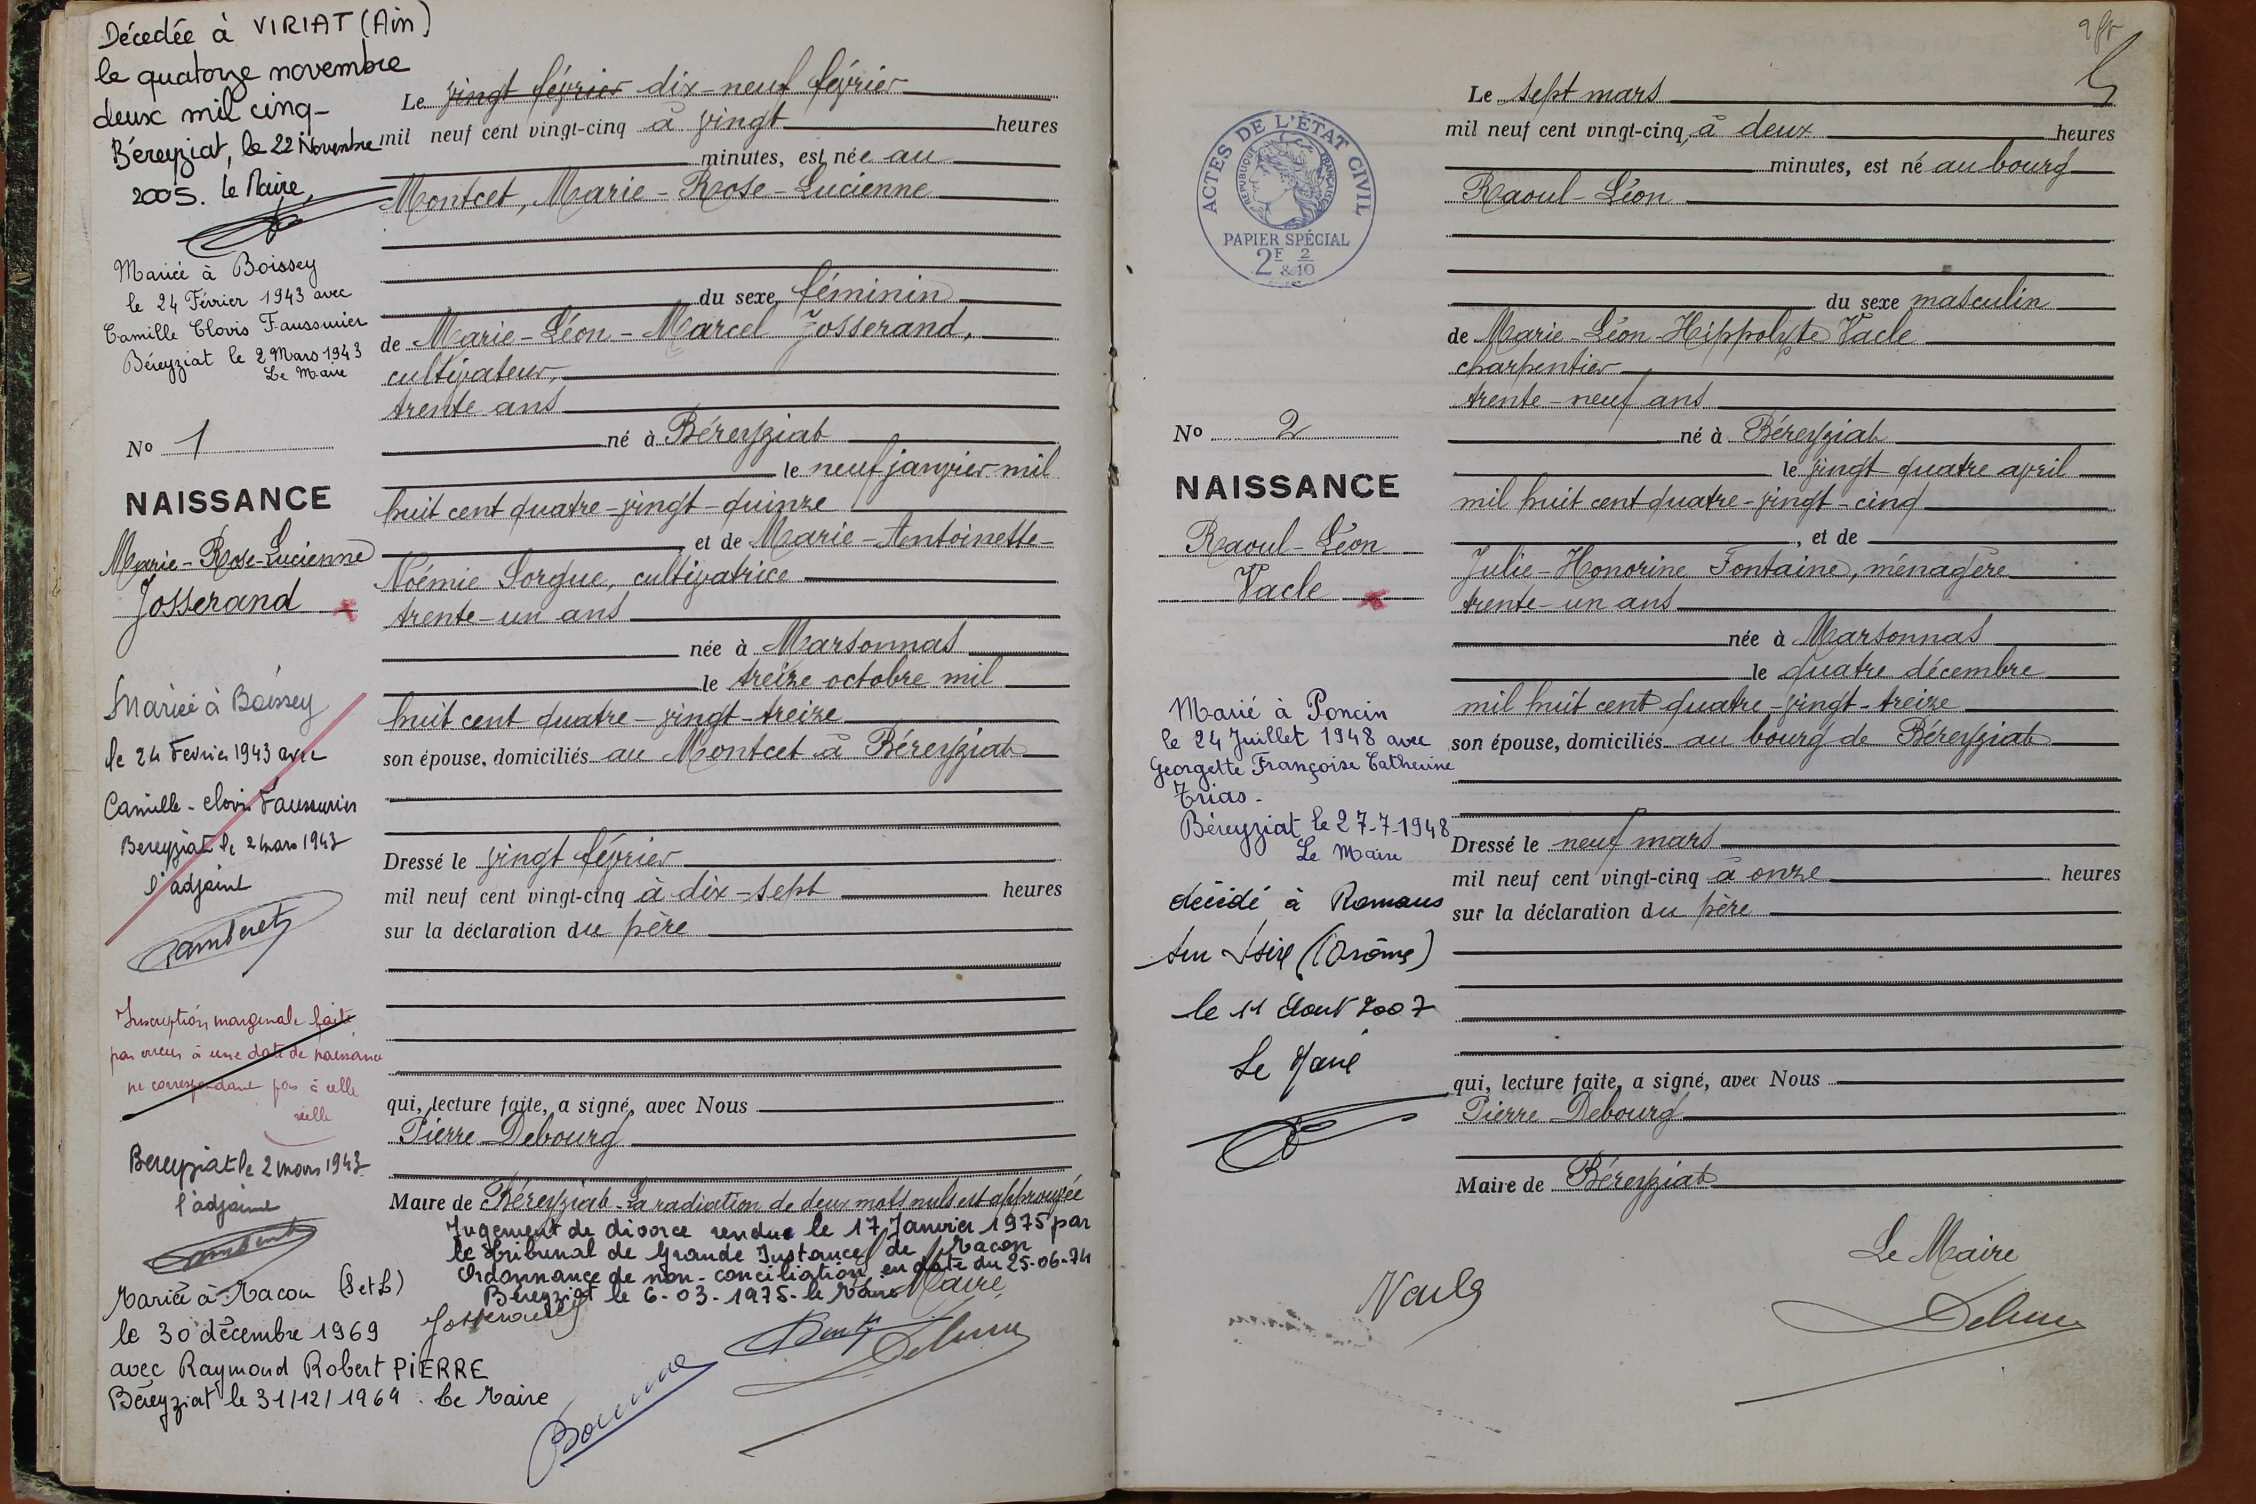 Décedée à VIRIAT (Ain)
le quatorze novembre
deux mil cinq-
Béreyziat, le 22 Novembre
2005. Le Maire,
Mariée à Boissey
le 24 Février 1943 avec
Camille Clovis Faussurier
Béreyziat le 2 Mars 1943
Le Maire
No 1
NAISSANCE
Marie-Rose-Lucienne
Josserand
Mariée à Boissey
le 24 Fevrier 1943 avec
Camille-Clovis Faussurier
Bereyziat le 2 mars 1943
l'adjoint
Inscription marginale faite
par erreur à une date de naissance
ne correspondant pas à celle
réelle
Bereyziat le 2 mars 1943
l'adjoint
Mariée à Macon (S et L)
le 30 décembre 1969
avec Raymond Robert PIERRE
Béreyziat le 31/12/1969. Le Maire
Le vingt février dix-neuf février
mil neuf cent vingt-cinq à vingt heures
minutes, est née au
Montcet, Marie-Rose-Lucienne
du sexe féminin
de Marie-Léon-Marcel Josserand,
cultivateur,
trente ans
né à Béreyziat
le neuf janvier mil
huit cent quatre-vingt-quinze
et de Marie-Antoinette-
Noémie Sorgue, cultivatrice
trente-un ans
née à Marsonnas
le treize octobre mil
huit cent quatre-vingt-treize
son épouse, domiciliés au Montcet à Béreyziat
Dressé le vingt février
mil neuf cent vingt-cinq à dix-sept heures
sur la déclaration du père
qui, lecture faite, a signé, avec Nous
Pierre Debourg
Maire de Béreyziat. La radiation de deux mots nuls est approuvée
Jugement de divorce rendue le 17 Janvier 1975 par
le Tribunal de Grande Instance de Macon
Ordonnance de non-conciliation en date du 25-06-74
Béreyziat le 6-03-1975- le Maire Maire
Josserand
2
Le sept mars
mil neuf cent vingt-cinq, à deux heures
minutes, est né au bourg
Raoul-Léon
ACTES DE L'ÉTAT CIVIL
REPUBLIQUE FRANÇAISE
PAPIER SPÉCIAL
2F & 2/10
du sexe masculin
de Marie-Léon-Hippolyte Vacle
charpentier
trente-neuf ans
né à Béreyziat
le vingt quatre avril
mil huit cent quatre-vingt-cinq
, et de
Julie-Honorine Fontaine, ménagère
trente-un ans
née à Marsonnas
le quatre décembre
mil huit cent quatre-vingt-treize
son épouse, domiciliés au bourg de Béreyziat
Dressé le neuf mars
mil neuf cent vingt-cinq à onze heures
sur la déclaration du père
qui, lecture faite, a signé, avec Nous
Pierre Debourg
Maire de Béreyziat
Le Maire
No 2
NAISSANCE
Raoul-Léon
Vacle
Marié à Poncin
le 24 Juillet 1948 avec
Georgette Françoise Catherine
Trias-
Béreyziat le 27-7-1948
Le Maire
décédé à Romans
sur Isère (Drôme)
le 11 Aout 2007
Le Maire